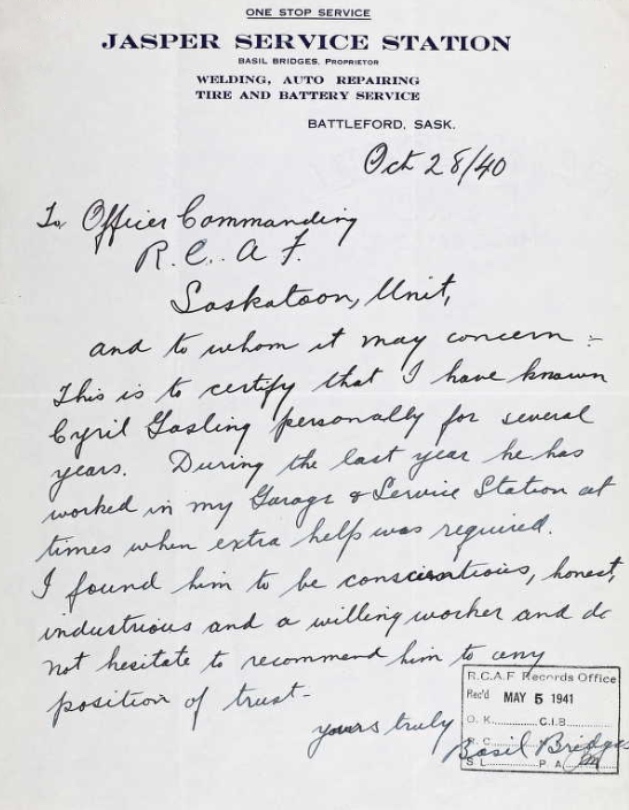 ONE STOP SERVICE
JASPER SERVICE STATION
BASIL BRIDGES, PROPRIETOR
WELDING, AUTO REPAIRING
TIRE AND BATTERY SERVICE
BATTLEFORD, SASK.
Oct 28/40
To Officer Commanding
R. C. A F.
Saskatoon, Unit,
and to whom it may concern :-
This is to certify that I have known
Cyril Gosling personally for several
years. During the last year he has
worked in my Garage & Service Station at
times when extra help was required.
I found him to be consciontious, honest,
industrious and a willing worker and do
not hesitate to recommend him to any
position of trust-
yours truly
Basil Bridges
R.C.A.F Records Office
Rec'd MAY 5 1941
O. K. C.I.B
R.C.
S L P. A.